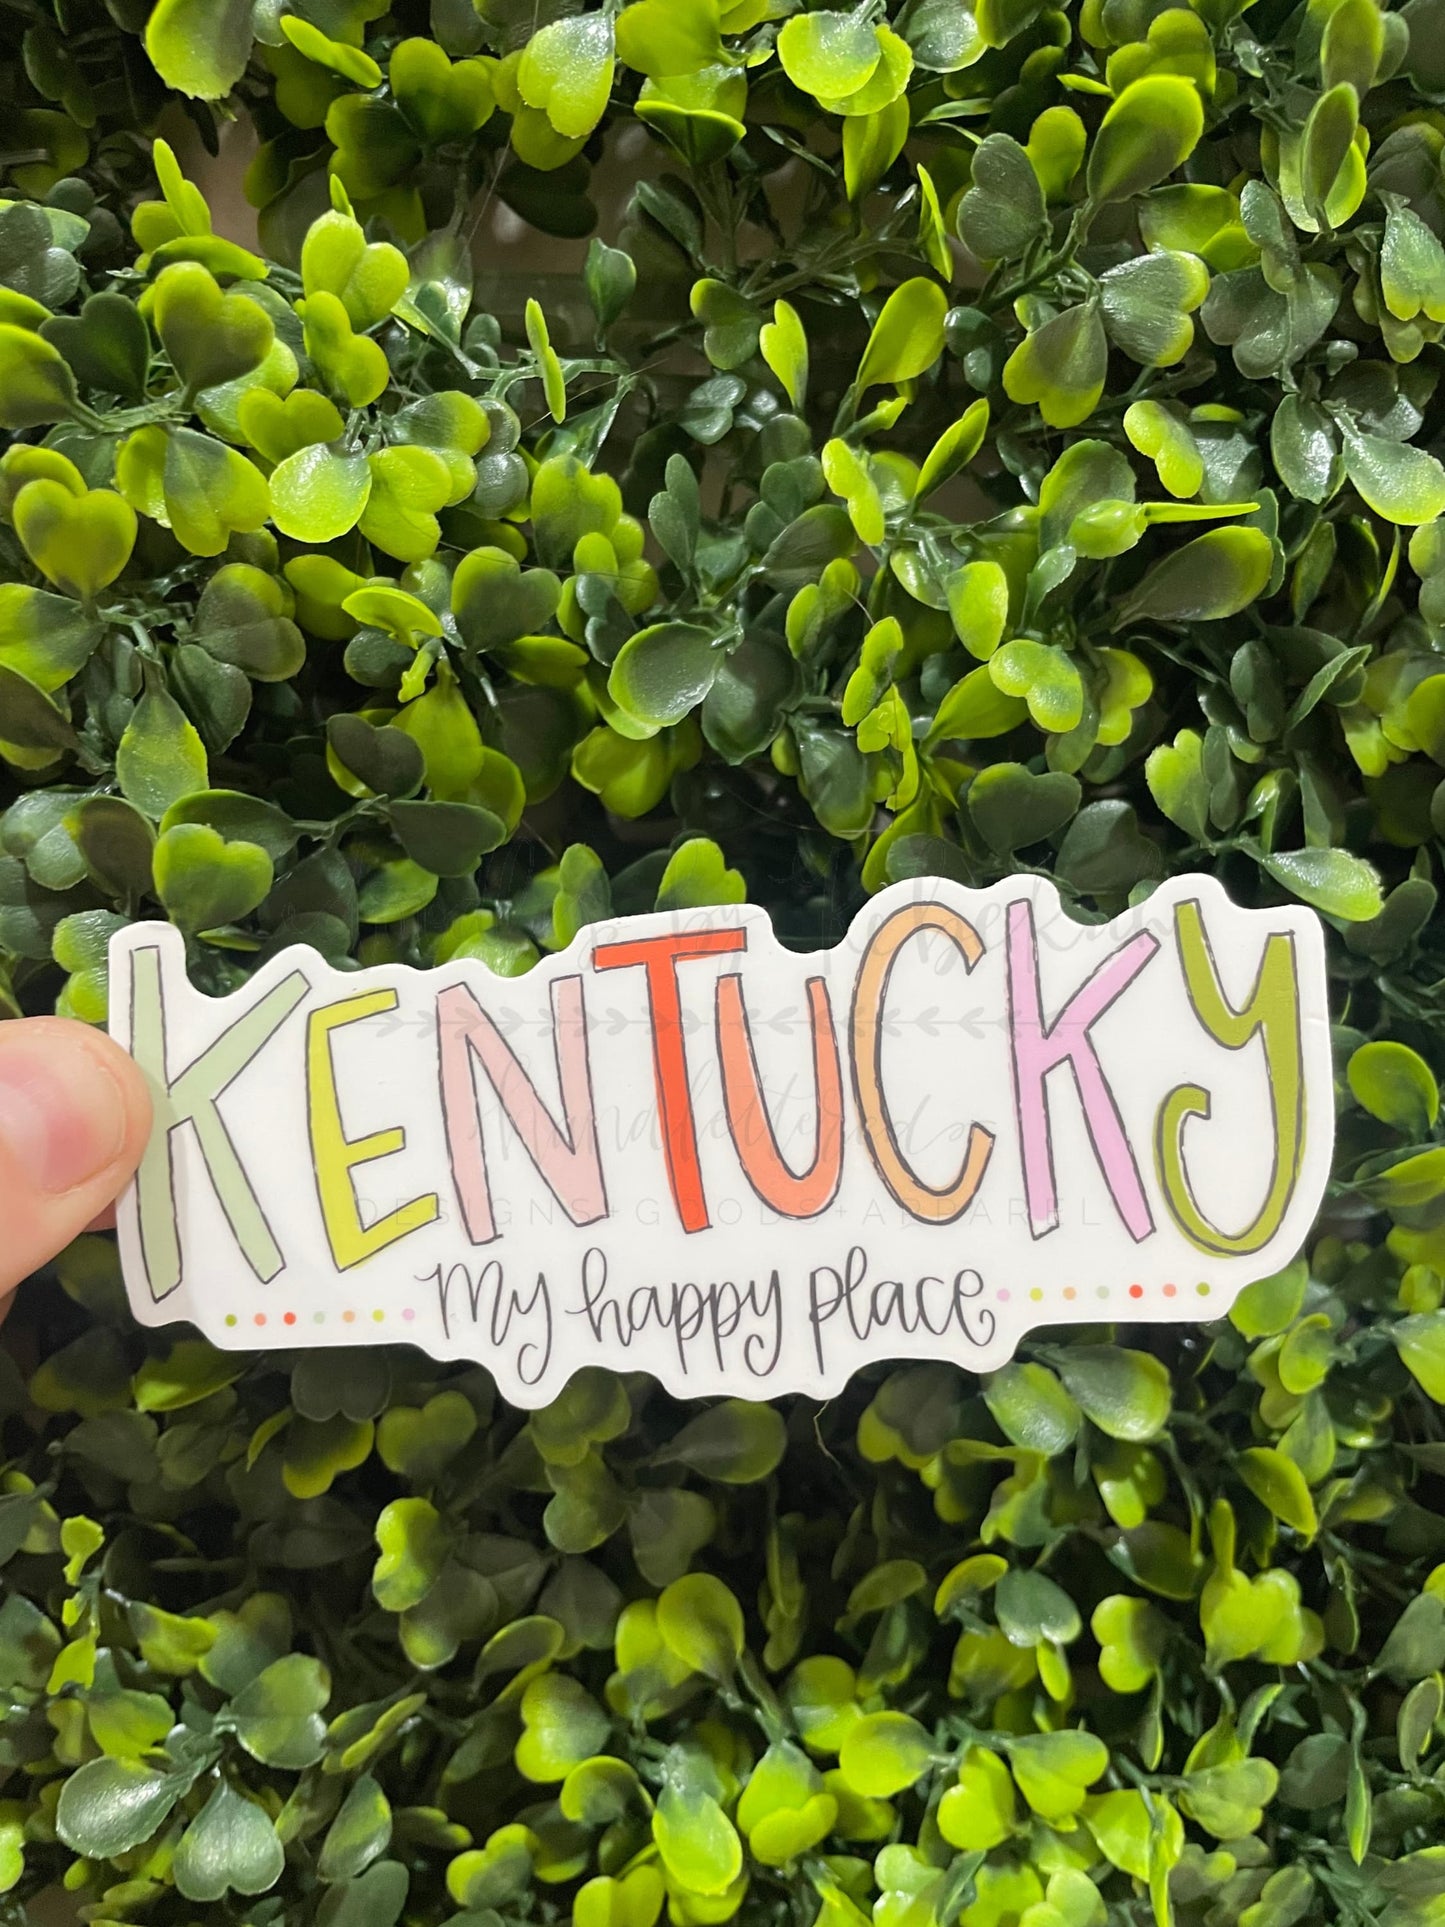 KENTUCKY
My happy place
handlettered
DESIGNS+GOODS+APPAREL